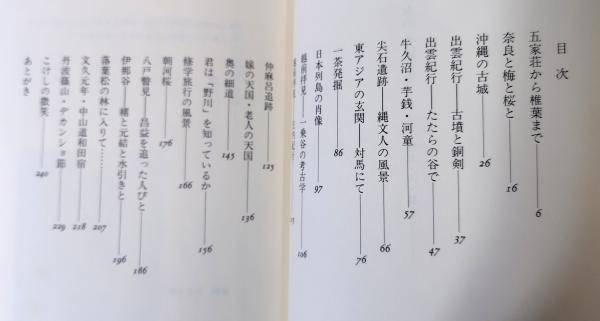 目次
五家荘から椎葉まで——6
奈良と梅と桜と——16
沖縄の古城——26
出雲紀行——古墳と銅剣——37
出雲紀行——たたらの谷で——47
牛久沼・芋銭・河童——57
尖石遺跡——縄文人の風景——66
東アジアの玄関——対馬にて——76
一茶発掘——86
日本列島の肖像——97
越前拝見——一乗谷の考古学——106
仲麻呂追跡——125
嫁の天国・老人の天国——136
奥の細道——145
君は「野川」を知っているか——156
修学旅行の風景——166
朝河桜——176
八戸瞥見——昌益を追った人びと——186
伊那谷——緒と元結と水引きと——196
落葉松の林に入りて……——207
文久元年・中山道和田宿——218
丹波篠山・デカンショ節——229
こけしの微笑——240
あとがき